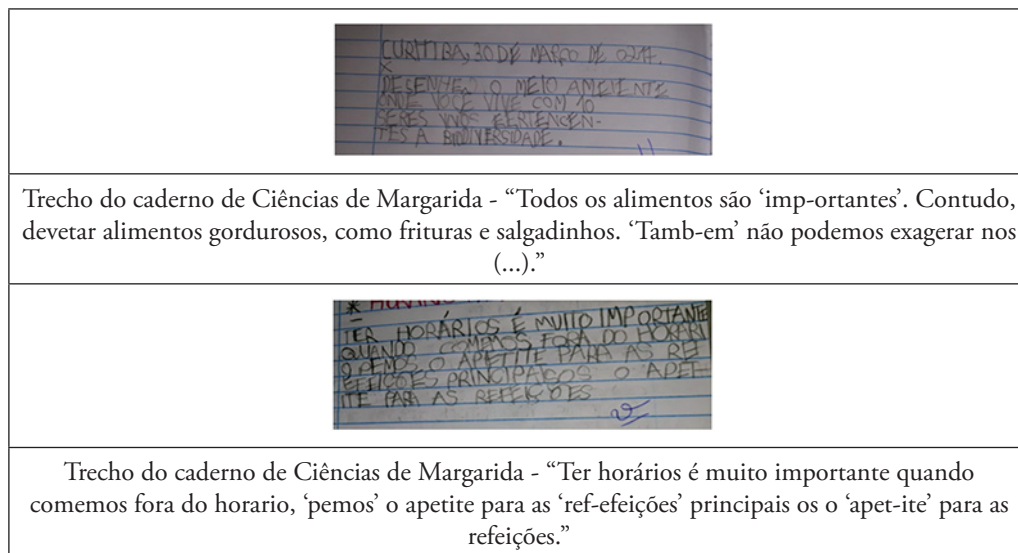 CURITIBA, 30 DE MARÇO DE
X
DESENHE O MEIO AMBIENTE
ONDE VOCÊ VIVE COM 10
SERES VIVOS PERTENCEN-
TES A BIODIVERSIDADE.
Trecho do caderno de Ciências de Margarida - “Todos os alimentos são ‘imp-ortantes’. Contudo,
devetar alimentos gordurosos, como frituras e salgadinhos. ‘Tamb-em’ não podemos exagerar nos
(...).”
*
TER HORÁRIOS É MUITO IMPORTANTE
QUANDO COMEMOS FORA DO HORARI
O PEMOS O APETITE PARA AS REF
EFEIÇÕES PRINCIPAISOS O APET-
ITE PARA AS REFEIÇÕES
Trecho do caderno de Ciências de Margarida - “Ter horários é muito importante quando
comemos fora do horario, ‘pemos’ o apetite para as ‘ref-efeições’ principais os o ‘apet-ite’ para as
refeições.”